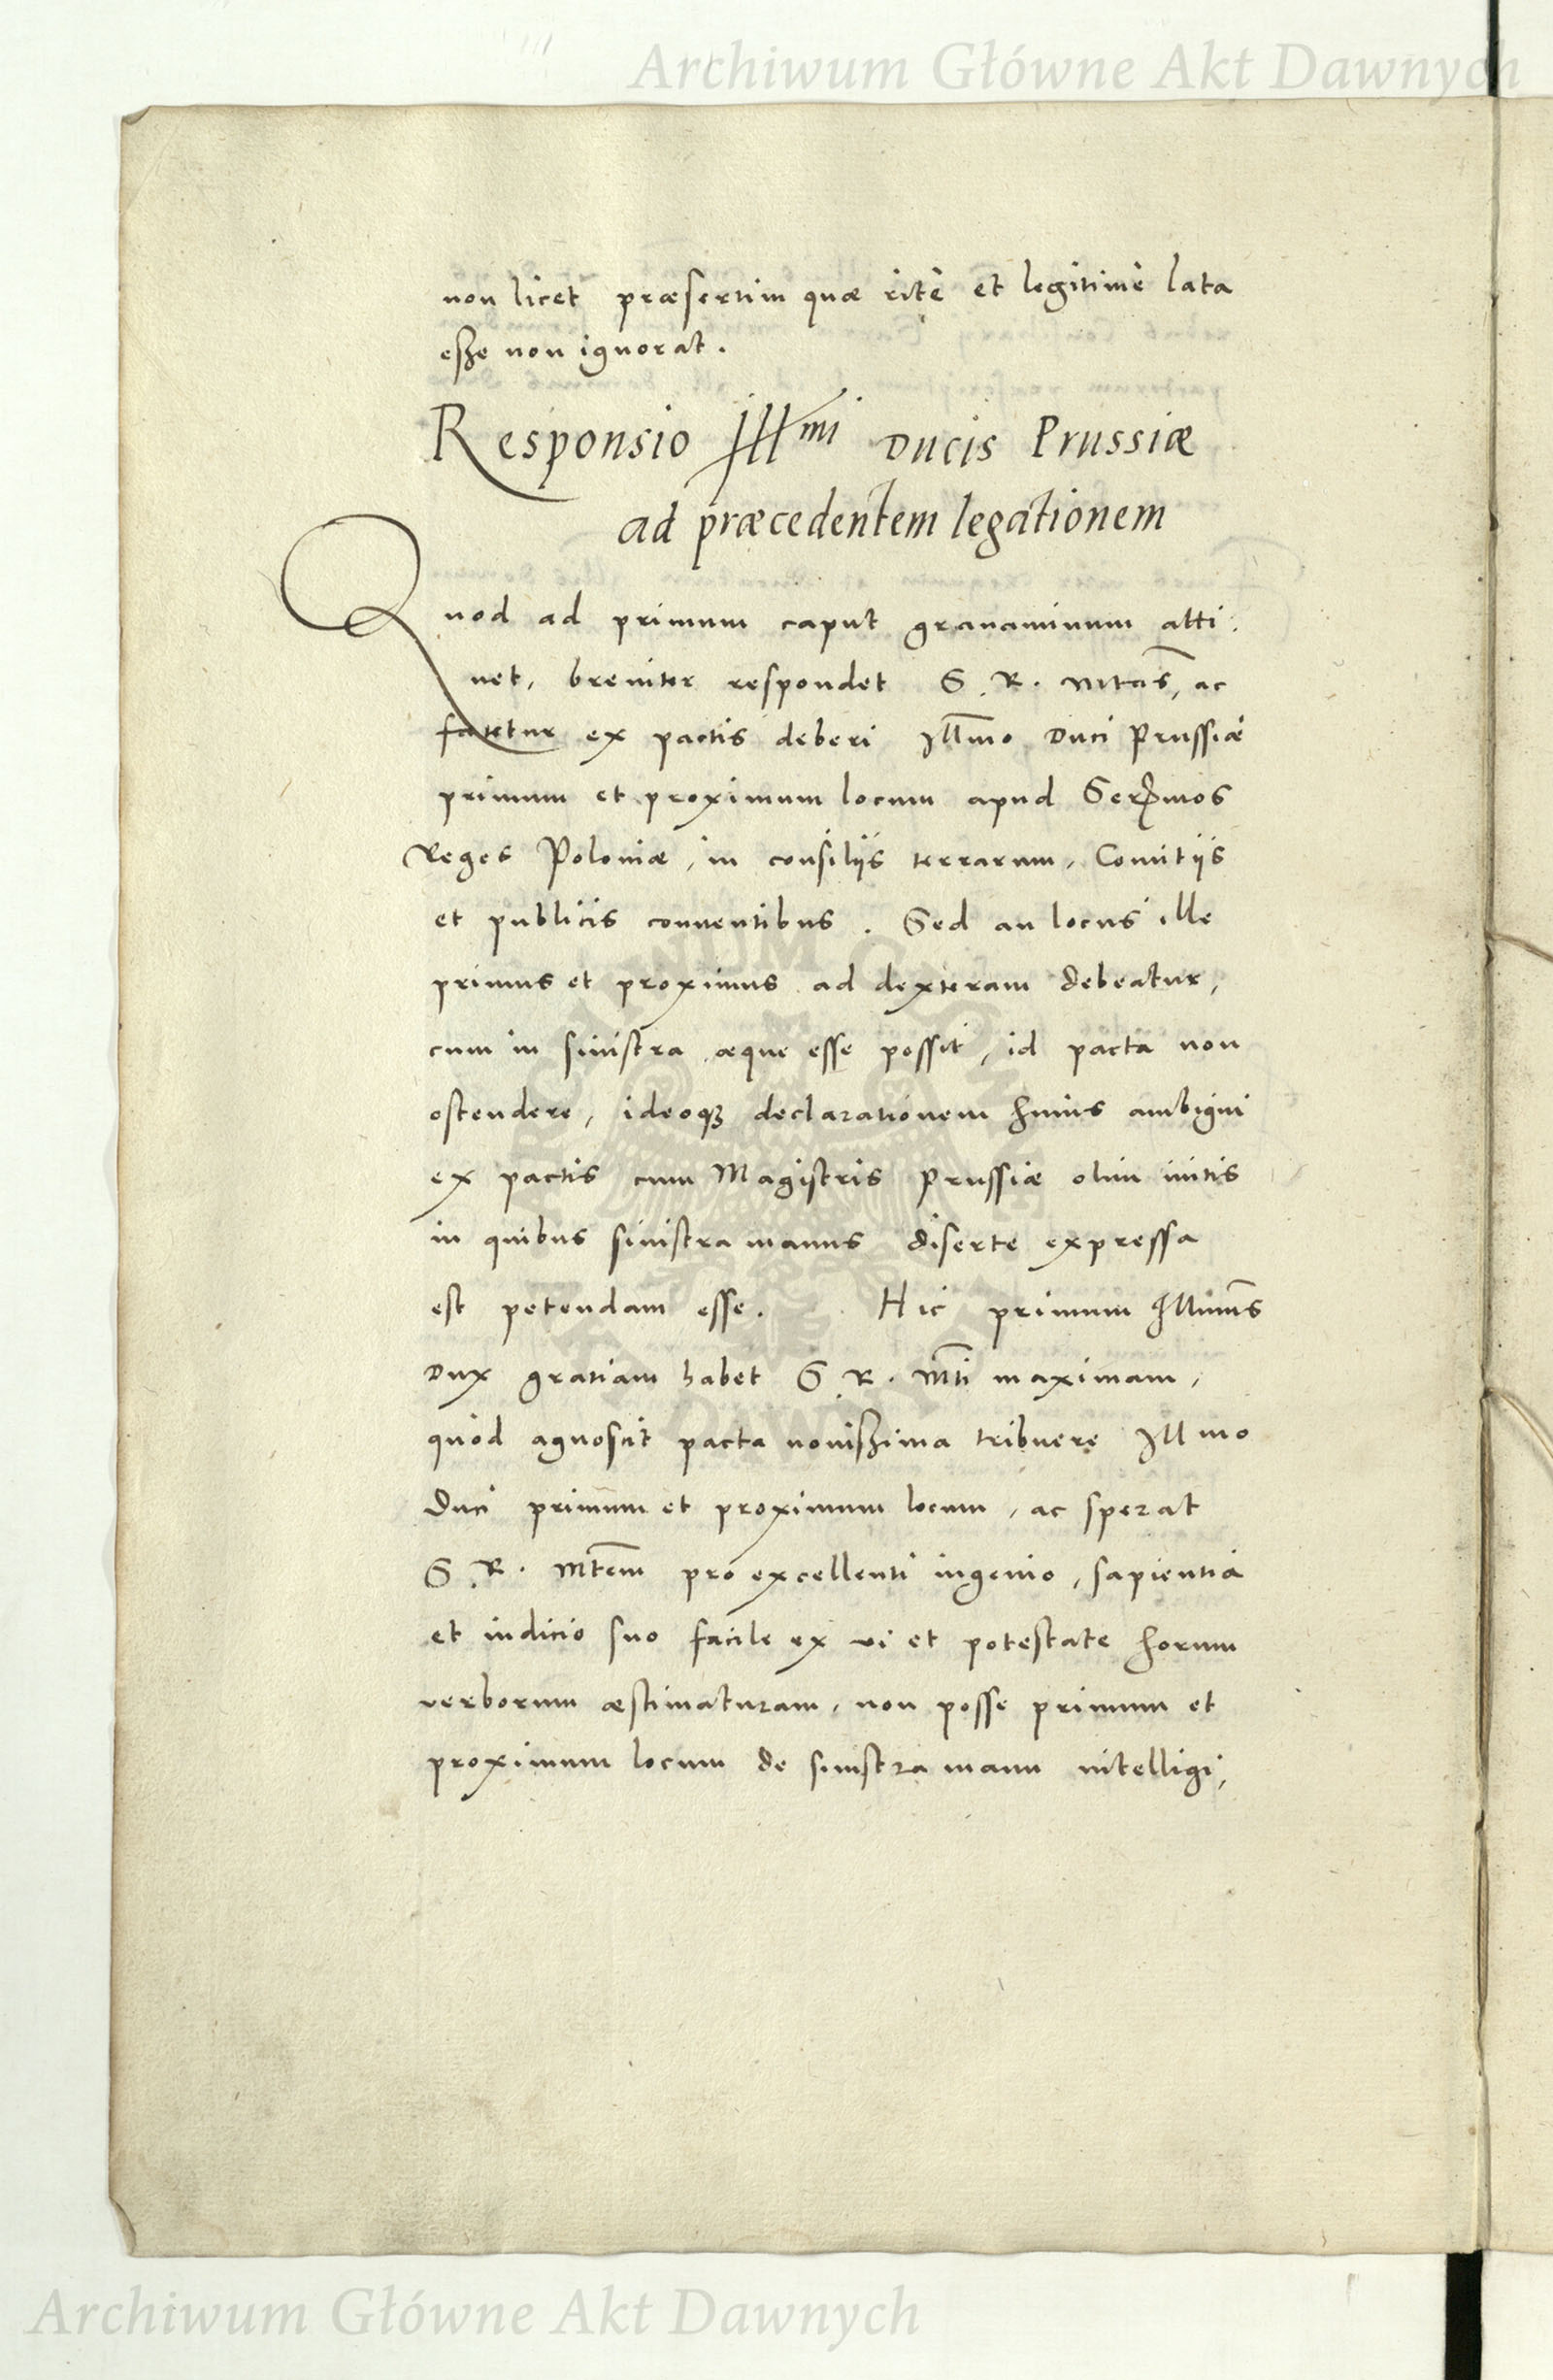 Archiwum Główne Akt Dawnych
non licet præsertim quæ ritè et legitimè lata
esse non ignorat.
Responsio Illmi Ducis Prussiæ
ad præcedentem legationem
Quod ad primum caput grauaminum atti.
net, breuiter respondet S. R. Mtas, ac
fatetur ex pactis deberi Illmo Duci Prussiæ
primum et proximum locum apud Sermos
Reges Poloniæ, in consiliis terrarum, Comitiis
et publicis conuentibus. Sed an locus ille
primus et proximus ad dexteram debeatur,
cum in sinistra æque esse possit, id pacta non
ostendere, ideoq3 declarationem huius ambigui
ex pactis cum Magistris Prussiæ olim initis
in quibus sinistra manus diserte expressa
est petendam esse. Hic primum Illmus
Dux gratiam habet S. R. Mti maximam,
quòd agnoscit pacta nouissima tribuere Illmo
Duci primum et proximum locum, ac sperat
S. R. Mtem pro excellenti ingenio, sapientia
et iudicio suo facile ex vi et potestate horum
verborum æstimaturam, non posse primum et
proximum locum de sinistra manu intelligi,
Archiwum Główne Akt Dawnych